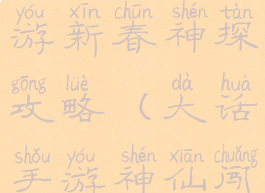 yóu xīn chūn shén tàn
游新春神探
gōng lüè dà huà
攻略（大话
shǒu yóu shén xiān chuǎng
手游神仙闯